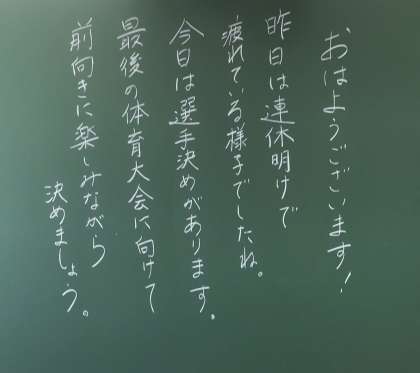 おはようございます!
昨日は連休明けで
疲れている様子でしたね。
今日は選手決めがあります。
最後の体育大会に向けて
前向きに楽しみながら
決めましょう。